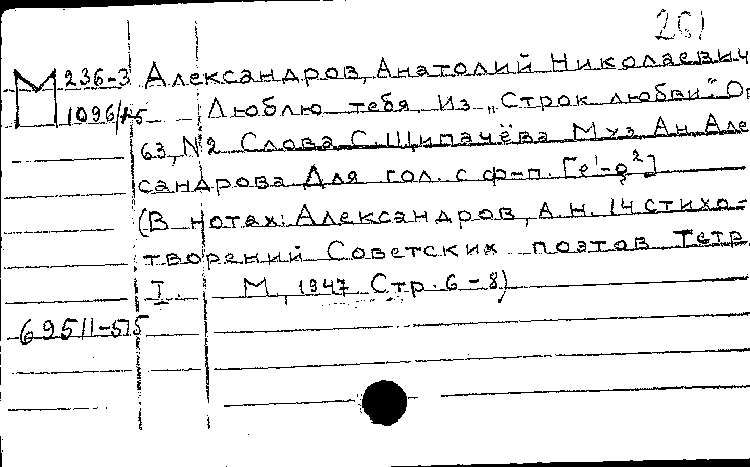 261
М 236-3 Александров, Анатолий Николаевич
1096/45 Люблю тебя. Из „Строк любви". Ор.
63, №2 Слова С. Щипачёва Муз Ан Алек
сандрова Для гол. с ф-п. [e¹-g²]
(В нотах: Александров, А.Н. 14 стихо-
творений Советских поэтов Тетр.
I. М, 1947 Стр. 6-8)
69511-515